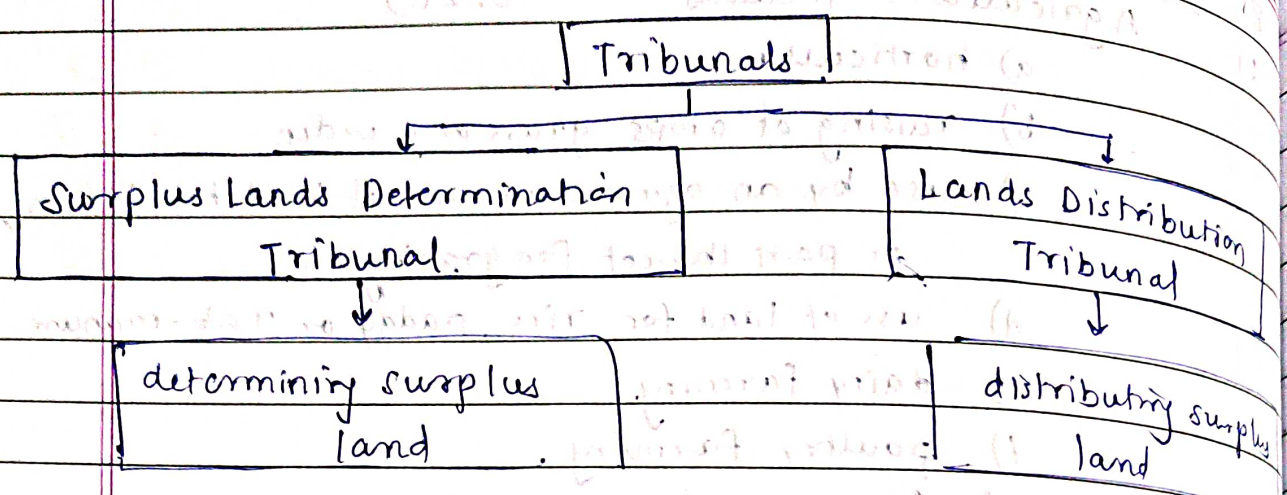 Tribunals
Surplus Lands Determination
Tribunal.
Lands Distribution
Tribunal
determining surplus
land
distributing surplus
land